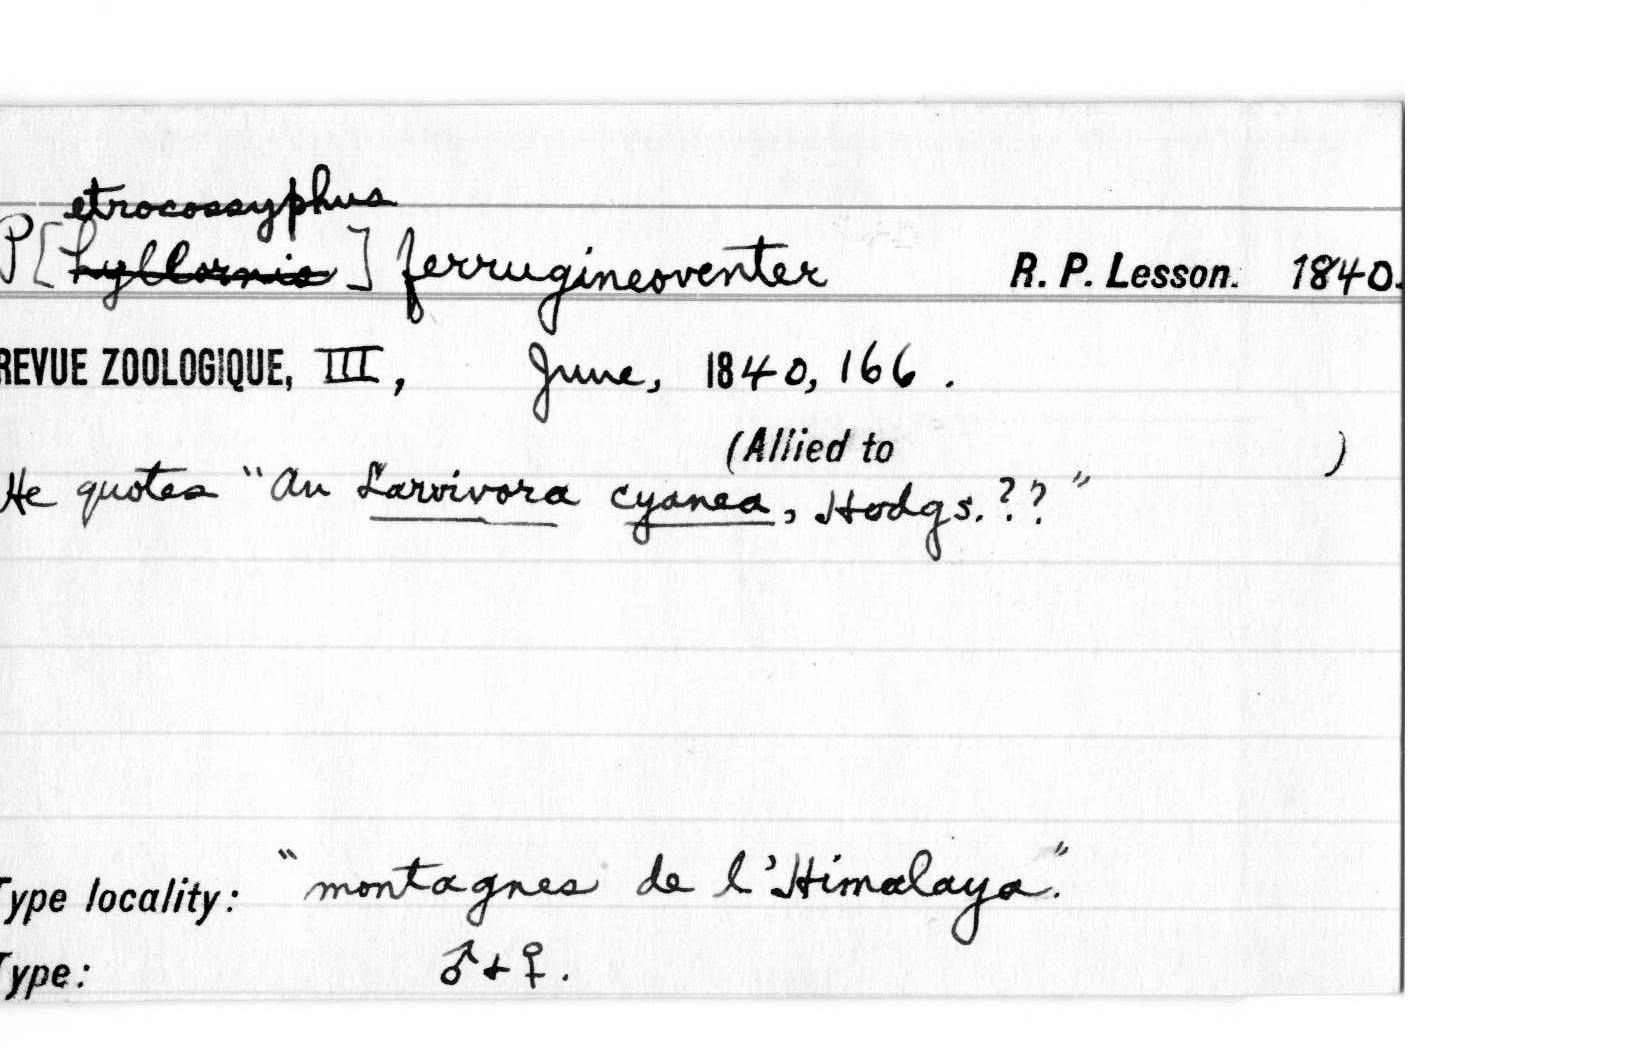 etrocossyphus
P[hyllornis] ferrugineoventer R. P. Lesson. 1840.
REVUE ZOOLOGIQUE, III, June, 1840, 166.
(Allied to )
He quotes "An Larvivora cyanea, Hodgs.??"
Type locality: "montagnes de l'Himalaya."
Type: ♂ + ♀.